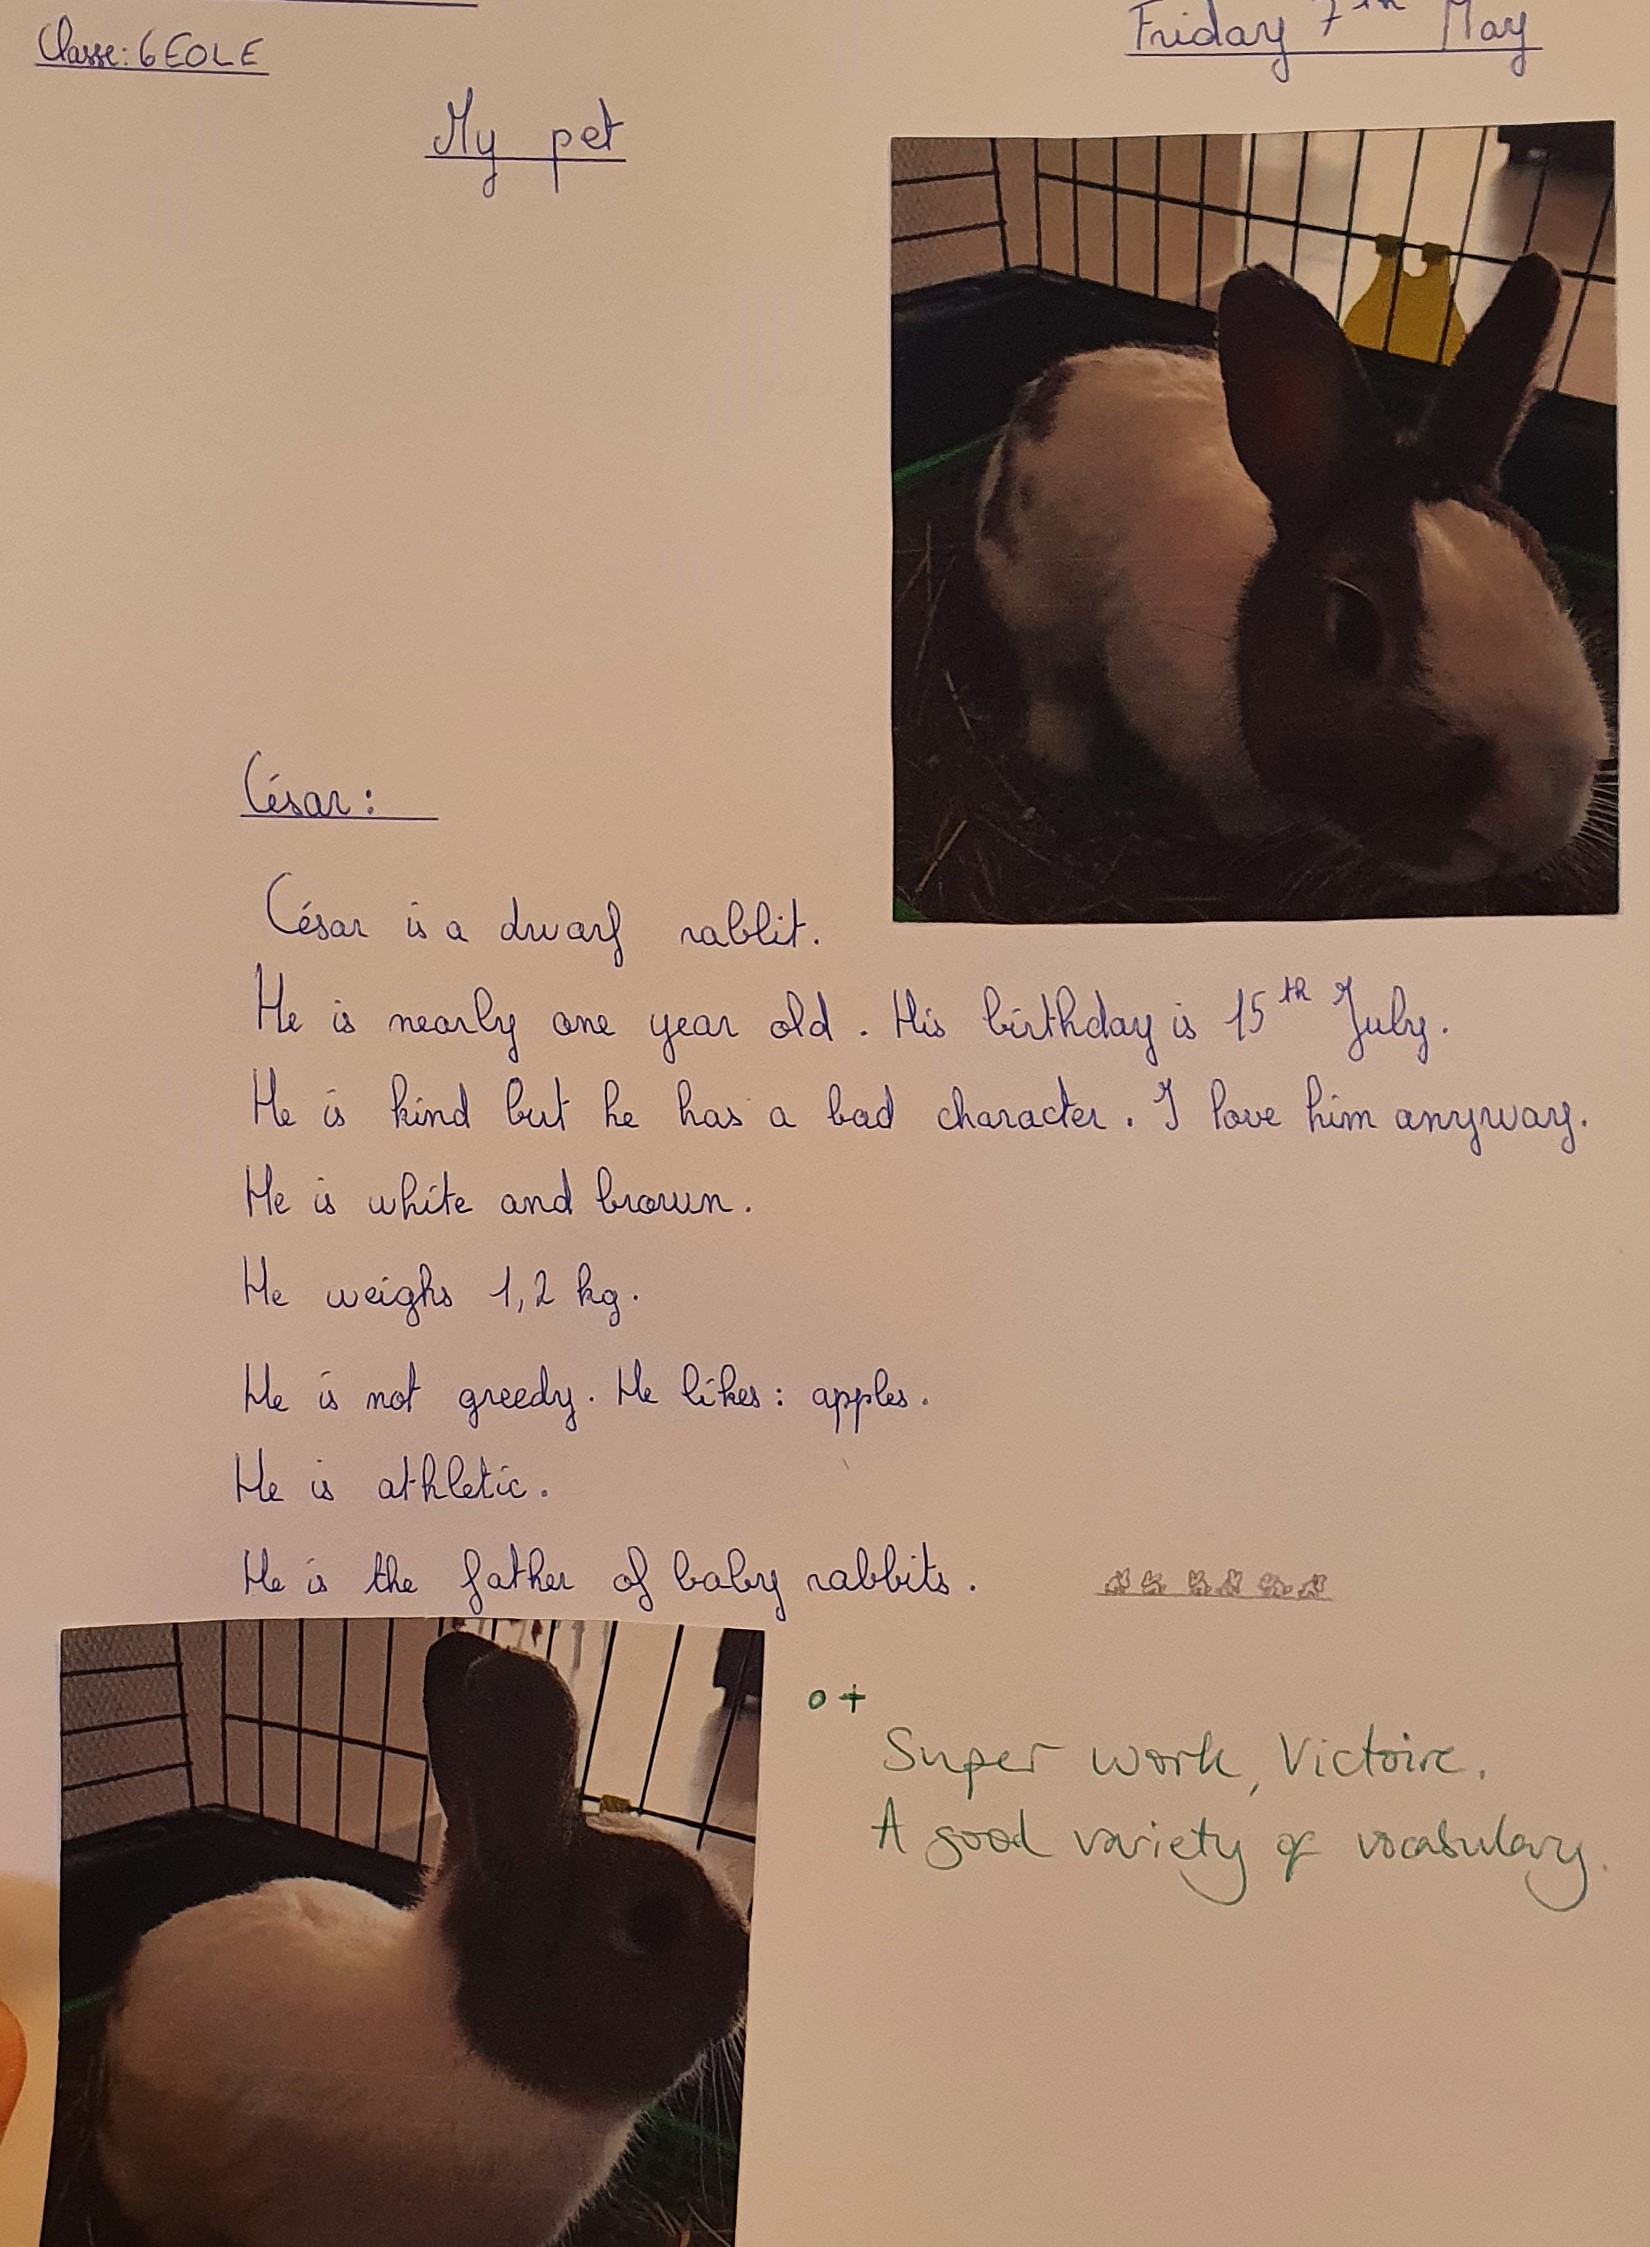 Classe: 6 EOLE
Friday 7th May
My pet
César:
César is a dwarf rabbit.
He is nearly one year old. His birthday is 15th July.
He is kind but he has a bad character. I love him anyway.
He is white and brown.
He weighs 1,2 kg.
He is not greedy. He likes: apples.
He is athletic.
He is the father of baby rabbits.
o+
Super work, Victoire.
A good variety of vocabulary.